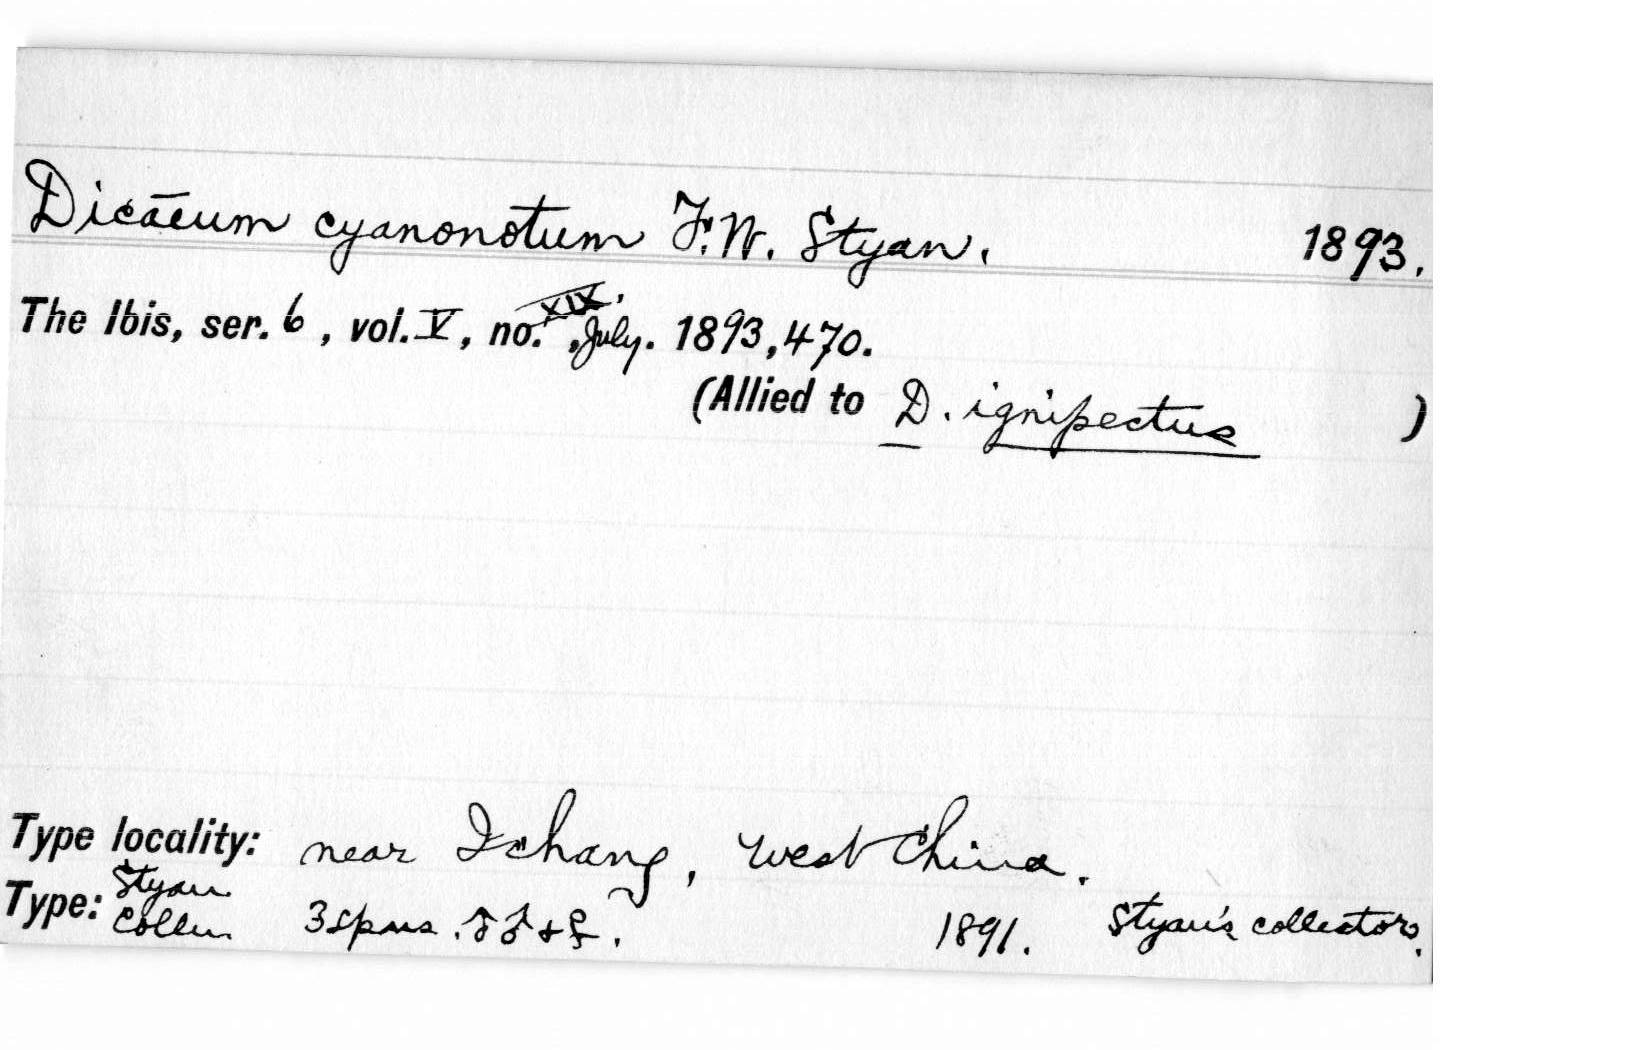 Dicaeum cyanonotum F.W. Styan. 1893.
The Ibis, ser. 6, vol. V, no. XIX, July. 1893, 470.
(Allied to D. ignipectus )
Type locality: near Ichang, west China.
Type: Styan Colln 3 spms. ♂♂ + ♀. 1891. Styan's collectors.